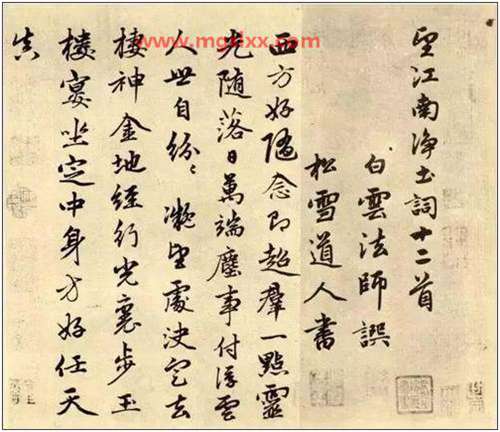 www.mgxlxx.com
望江南净土詞十二首
白雲法師譔
松雪道人書
西方好随念即超羣一點靈
光随落日萬端塵事付浮雲
人世自紛〻凝望處决定去
棲神金地經行光裏步玉
樓宴坐定中身方好任天
真